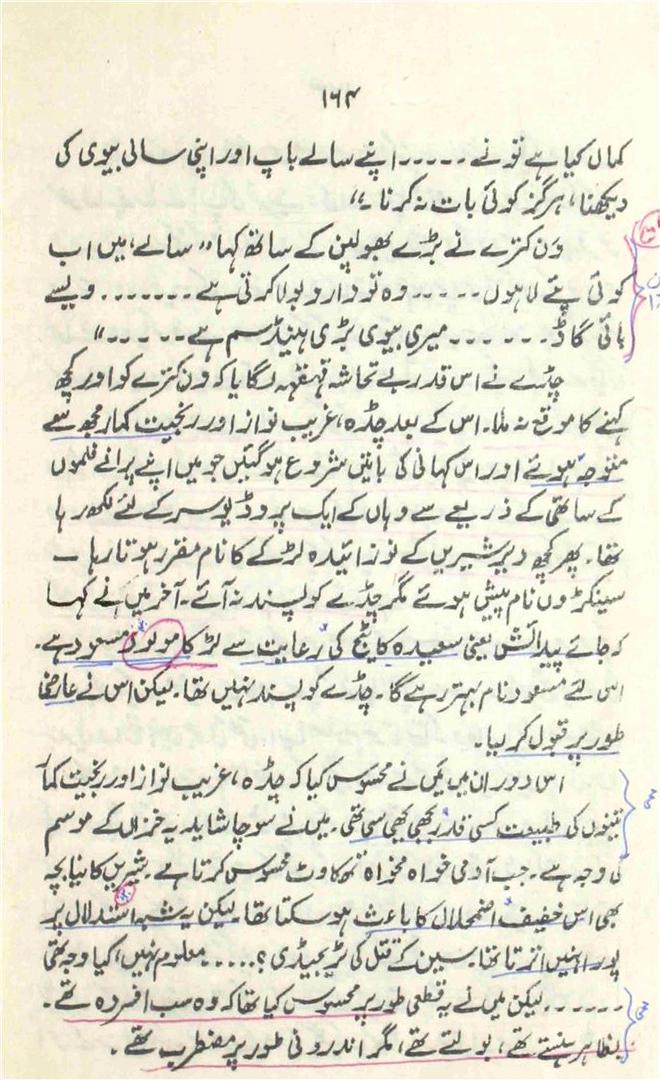 ۱۶۴
کمال کیا ہے تو نے ۔۔۔۔۔ اپنے سالے باپ اور اپنی سالی بیوی کی
دیکھنا، ہرگز کوئی بات نہ کرنا۔"
ون کترے نے بڑے بھولپن کے ساتھ کہا "سالے، میں اب
کوئی پئے لا ہوں ۔۔۔۔۔ وہ تو دارو بولا کرتی ہے ۔۔۔۔۔۔ ویسے
بائی گاڈ ۔۔۔۔۔۔ میری بیوی بڑی ہینڈسم ہے ۔۔۔۔۔"
چڈے نے اس قدر بے تحاشہ قہقہہ لگایا کہ ون کترے کو اور کچھ
کہنے کا موقع نہ ملا۔ اس کے بعد چڈہ، غریب نواز اور رنجیت کمار مجھ سے
متوجہ ہوئے اور اس کہانی کی باتیں شروع ہوگئیں جو میں اپنے پرانے فلموں
کے ساتھی کے ذریعے سے وہاں کے ایک پروڈیوسر کے لئے لکھ رہا
تھا۔ پھر کچھ دیر شیریں کے نوزائیدہ لڑکے کا نام مقرر ہوتا رہا —
سینکڑوں نام پیش ہوئے مگر چڈے کو پسند نہ آئے۔ آخر میں نے کہا
کہ جائے پیدائش یعنی سعیدہ کاٹیج کی رعایت سے لڑکا مولود مسعود ہے۔
اس لئے مسعود نام بہتر رہے گا۔ چڈے کو پسند نہیں تھا۔ لیکن اس نے عارضی
طور پر قبول کر لیا۔
اس دوران میں میں نے محسوس کیا کہ چڈہ، غریب نواز اور رنجیت کمار
تینوں کی طبیعت کسی قدر بجھی بجھی سی تھی۔ میں نے سوچا شاید یہ خزاں کے موسم
کی وجہ ہے۔ جب آدمی خواہ مخواہ تھکاوٹ محسوس کرتا ہے۔ شیریں کا نیا بچہ
بھی اس خفیف اضمحلال کا باعث ہو سکتا تھا۔ لیکن یہ شبہ استدلال پر
پورا نہیں اترتا تھا۔ سین کے قتل کی ٹریجیڈی؟ ۔۔۔۔۔ معلوم نہیں، کیا وجہ تھی
۔۔۔۔۔۔ لیکن میں نے یہ قطعی طور پر محسوس کیا تھا کہ وہ سب افسردہ تھے۔
بظاہر ہنستے تھے، بولتے تھے، مگر اندرونی طور پر مضطرب تھے۔